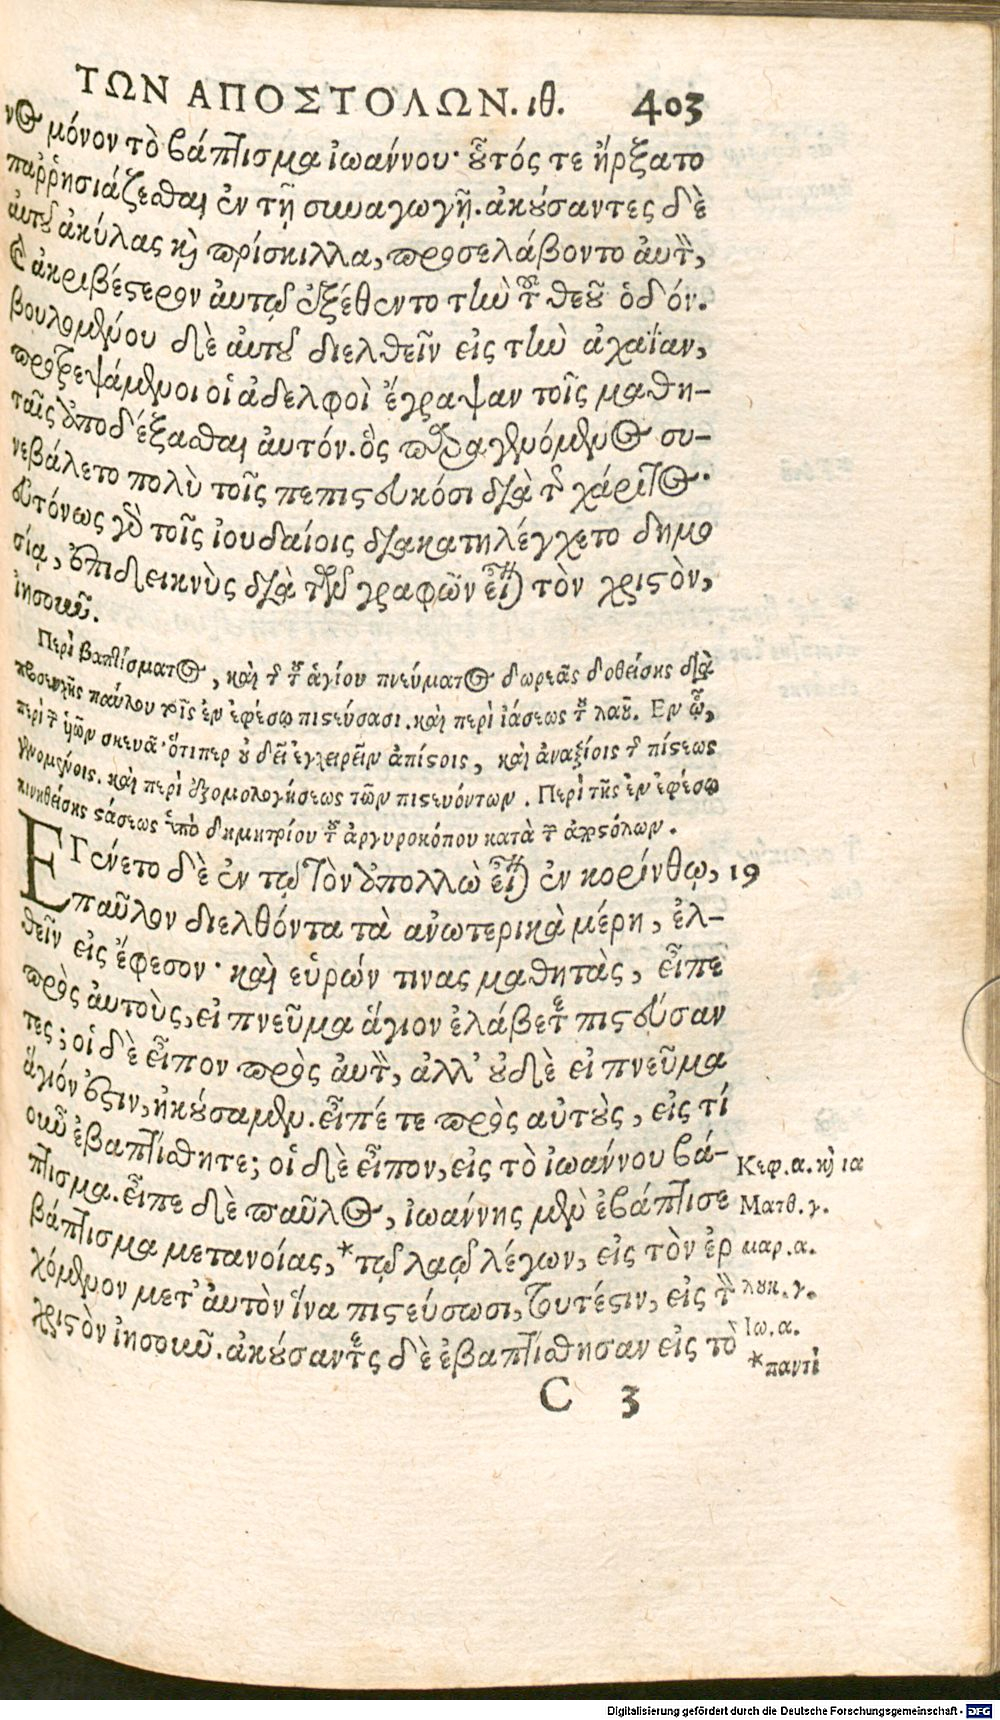 ΤΩΝ ΑΠΟΣΤΟΛΩΝ. ιθ. 403
νος μόνον τὸ βάπτισμα ἰωάννου· οὗτός τε ἤρξατο
παῤῥησιάζεσθαι ἐν τῇ συναγωγῇ. ἀκούσαντες δὲ
ἀυτοῦ ἀκύλας καὶ πρίσκιλλα, προσελάβοντο ἀυτὸν,
καὶ ἀκριβέστερον ἀυτῷ ἐξέθεντο τὴν τοῦ θεοῦ ὁδόν.
βουλομένου δὲ ἀυτοῦ διελθεῖν εἰς τὴν ἀχαΐαν,
προτρεψάμενοι οἱ ἀδελφοὶ ἔγραψαν τοῖς μαθη-
ταῖς ἀποδέξασθαι ἀυτόν. ὃς παραγενόμενος συ-
νεβάλετο πολὺ τοῖς πεπιστευκόσι διὰ τῆς χάριτος·
εὐτόνως γὰρ τοῖς ἰουδαίοις διακατηλέγχετο δημο
σίᾳ, ἐπιδεικνὺς διὰ τῶν γραφῶν εἶναι τὸν χριστὸν,
ἰησοῦν.
Περὶ βαπτίσματος, καὶ τῆς τοῦ ἁγίου πνεύματος δωρεᾶς δοθείσης διὰ
προσευχῆς παύλου τοῖς ἐν ἐφέσῳ πιστεύσασι. καὶ περὶ ἰάσεως τοῦ λαοῦ. Εν ᾧ,
περὶ τῶν ἡῶν σκευᾶ· ὅτιπερ οὐ δεῖ ἐγχειρεῖν ἀπίστοις, καὶ ἀναξίοις τῆς πίστεως
γινομένοις. καὶ περὶ ἐξομολογήσεως τῶν πιστευόντων. Περὶ τῆς ἐν ἐφέσῳ
κινηθείσης στάσεως ὑπὸ δημητρίου τοῦ ἀργυροκόπου κατὰ τῶν ἀποστόλων.
ΕΓένετο δὲ ἐν τῷ τὸν ἀπολλὼ εἶναι ἐν κορίνθῳ, 19
παῦλον διελθόντα τὰ ἀνωτερικὰ μέρη, ἐλ-
θεῖν εἰς ἔφεσον· καὶ εὑρών τινας μαθητὰς, εἶπε
πρὸς ἀυτοὺς, εἰ πνεῦμα ἅγιον ἐλάβετε πιστεύσαν
τες; οἱ δὲ εἶπον πρὸς ἀυτὸν, ἀλλ' οὐδὲ εἰ πνεῦμα
ἅγιόν ἐστιν, ἠκούσαμεν. εἶπέ τε πρὸς αὐτοὺς, εἰς τί
οὖν ἐβαπτίσθητε; οἱ δὲ εἶπον, εἰς τὸ ἰωάννου βά-
πτισμα. εἶπε δὲ παῦλος, ἰωάννης μὲν ἐβάπτισε
βάπτισμα μετανοίας, *τῷ λαῷ λέγων, εἰς τὸν ἐρ
χόμενον μετ' ἀυτὸν ἵνα πιστεύσωσι, τουτέστιν, εἰς τὸν
χριστὸν ἰησοῦν. ἀκούσαντες δὲ ἐβαπτίσθησαν εἰς τὸ
Κεφ. α. καὶ ια
Ματθ. γ.
μαρ. α.
λουκ. γ.
Ιω. α.
*παντὶ
C 3
Digitalisierung gefördert durch die Deutsche Forschungsgemeinschaft - DFG